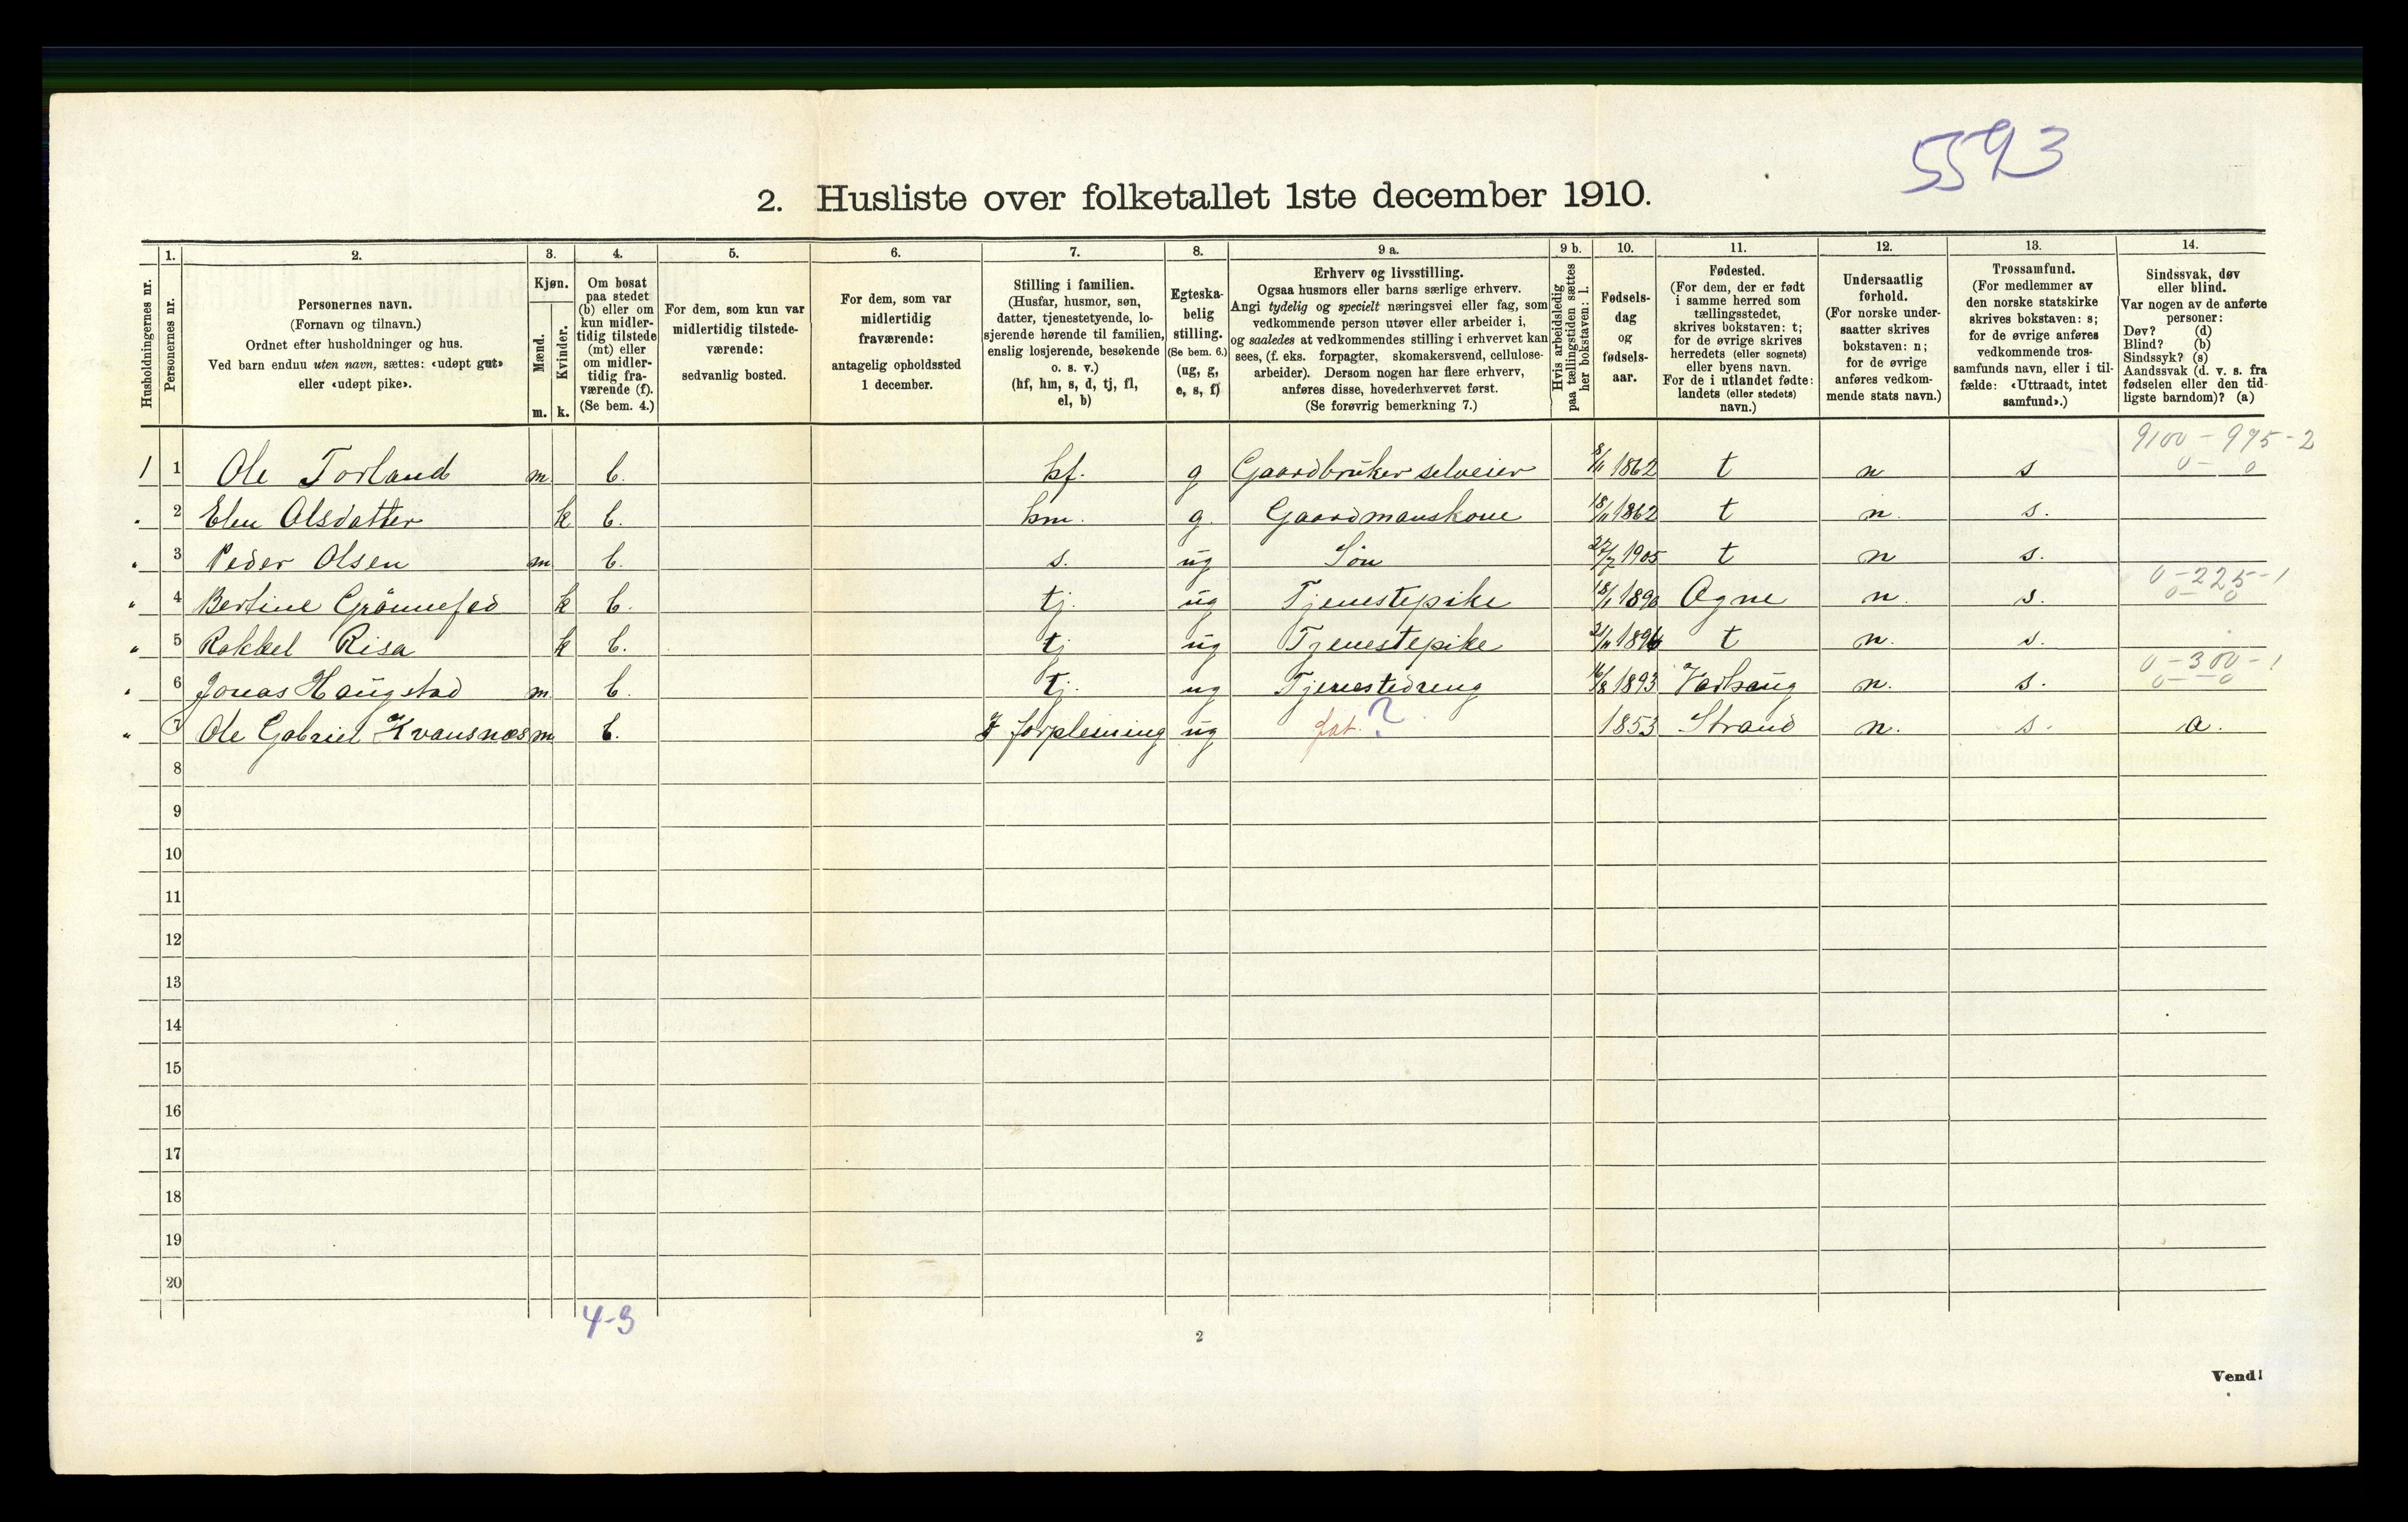 5593
2. Husliste over folketallet 1ste december 1910.
Husholdningernes nr.
1.
Personernes nr.
2.
Personernes navn.
(Fornavn og tilnavn.)
Ordnet efter husholdninger og hus.
Ved barn endnu uten navn, sættes: «udøpt gut»
eller «udøpt pike».
3.
Kjøn.
Mænd.
Kvinder.
m. k.
4.
Om bosat
paa stedet
(b) eller om
kun midler-
tidig tilstede
(mt) eller
om midler-
tidig fra-
værende (f).
(Se bem. 4.)
5.
For dem, som kun var
midlertidig tilstede-
værende:
sedvanlig bosted.
6.
For dem, som var
midlertidig
fraværende:
antagelig opholdssted
1 december.
7.
Stilling i familien.
(Husfar, husmor, søn,
datter, tjenestetyende, lo-
sjerende hørende til familien,
enslig losjerende, besøkende
o. s. v.)
(hf, hm, s, d, tj, fl,
el, b)
8.
Egteska-
belig
stilling.
(Se bem. 6.)
(ug, g,
e, s, f)
9 a.
Erhverv og livsstilling.
Ogsaa husmors eller barns særlige erhverv.
Angi tydelig og specielt næringsvei eller fag, som
vedkommende person utøver eller arbeider i,
og saaledes at vedkommendes stilling i erhvervet kan
sees, (f. eks. forpagter, skomakersvend, cellulose-
arbeider). Dersom nogen har flere erhverv,
anføres disse, hovederhvervet først.
(Se forøvrig bemerkning 7.)
9 b.
Hvis arbeidsledig
paa tællingstiden sættes
her bokstaven: l.
10.
Fødsels-
dag
og
fødsels-
aar.
11.
Fødested.
(For dem, der er født
i samme herred som
tællingsstedet,
skrives bokstaven: t;
for de øvrige skrives
herredets (eller sognets)
eller byens navn.
For de i utlandet fødte:
landets (eller stedets)
navn.)
12.
Undersaatlig
forhold.
(For norske under-
saatter skrives
bokstaven: n;
for de øvrige
anføres vedkom-
mende stats navn.)
13.
Trossamfund.
(For medlemmer av
den norske statskirke
skrives bokstaven: s;
for de øvrige anføres
vedkommende tros-
samfunds navn, eller i til-
fælde: «Uttraadt, intet
samfund».)
14.
Sindssvak, døv
eller blind.
Var nogen av de anførte
personer:
Døv? (d)
Blind? (b)
Sindssyk? (s)
Aandssvak (d. v. s. fra
fødselen eller den tid-
ligste barndom)? (a)
9100 - 975 - 2
1 1 Ole Torland m b. hf. g Gaardbruker selveier 8/11 1862 t n s 0 - 0
" 2 Elen Olsdatter k b. hm. g. Gaardmanskone 18/11 1862 t n. s.
" 3 Peder Olsen m b. s. ug Søn 27/7 1905 t n s.
0 - 225 - 1
" 4 Bertine Grönnefed k b. tj. ug Tjenestepike 18/1 1890 Ogne n. s. 0 - 0
" 5 Rakkel Risa k b. tj ug Tjenestepike 21/11 1896 t n. s.
0 - 300 - 1
" 6 Jonas Haugstad m. b. tj. ug Tjenestedreng 16/8 1893 Varhaug n. s. 0 - 0
" 7 Ole Gabriel Kvansnæs m b. I forpleining ug fat. ? 1853 Strand n. s. a.
8
9
10
11
12
13
14
15
16
17
18
19
20
4-3
2
Vend!